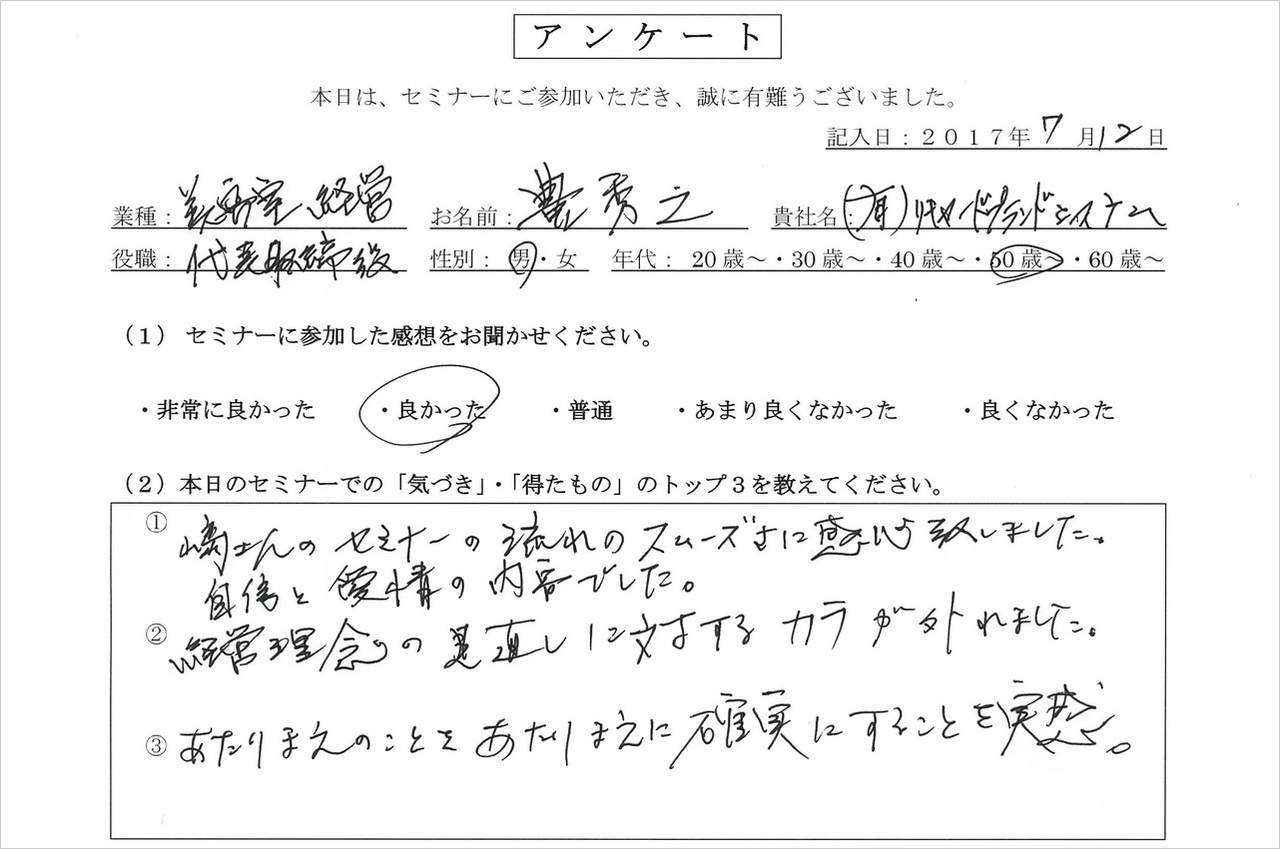 アンケート
本日は、セミナーにご参加いただき、誠に有難うございました。
記入日：２０１７年 7 月 12 日
業種： 美容室 経営 お名前： 豊 秀之 貴社名： (有)リチャードグランドシステム
役職： 代表取締役 性別： 男・女 年代： 20歳～・30歳～・40歳～・50歳～・60歳～
（１）セミナーに参加した感想をお聞かせください。
・非常に良かった ・良かった ・普通 ・あまり良くなかった ・良くなかった
（２）本日のセミナーでの「気づき」・「得たもの」のトップ３を教えてください。
① さんのセミナーの流れのスムーズさに感心致しました。
自信と愛情の内容でした。
② 経営理念の見直しに対するカラが外れました。
③ あたりまえのことをあたりまえに確実にすることを実感。